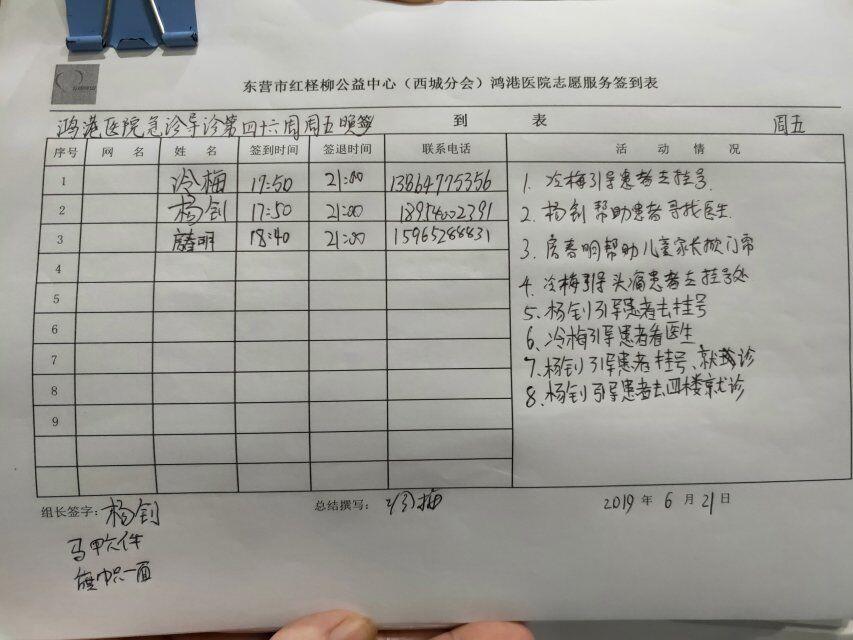 东营市红柽柳公益中心（西城分会）鸿港医院志愿服务签到表
鸿港医院急诊导诊第四十六周周五晚签 到 表 周五
序号 网 名 姓 名 签到时间 签退时间 联系电话 活 动 情 况
1 冷梅 17:50 21:00 13864775356
2 杨钊 17:50 21:00 18954002391
3 房春明 18:40 21:00 15965288831
4
5
6
7
8
9
1. 冷梅引导患者去挂号.
2. 杨钊帮助患者寻找医生.
3. 房春明帮助儿童家长掀门帘
4. 冷梅引导头痛患者去挂号处
5. 杨钊引导患者去挂号
6. 冷梅引导患者看医生
7. 杨钊引导患者挂号、就诊
8. 杨钊引导患者去四楼就诊
组长签字: 杨钊 总结撰写: 冷梅 2019 年 6 月 21 日
马甲六件
旗帜一面